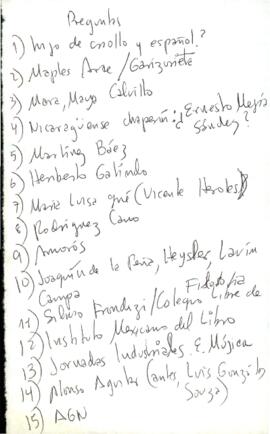 Preguntas
1) hijo de criollo y español?
2) Maples Arce / Garizurieta
3) Mora, Mayo Calvillo
4) Nicaragüense chaparrín: ¿Ernesto Mejía
Sánchez?
5) Martínez Báez
6) Heriberto Galindo
7) María Luisa qué (Vicente Heroles)
8) Rodríguez Cano
9) Amorós
10) Joaquín de la Peña, Heysler, Lavín
Campa
11) Silvio Frondizi / Colegio Libre de
Filosofía
12) Instituto Mexicano del Libro
13) Jornadas Industriales. E. Mújica
14) Alonso Aguilar (antes, Luis González
Souza)
15) AGN